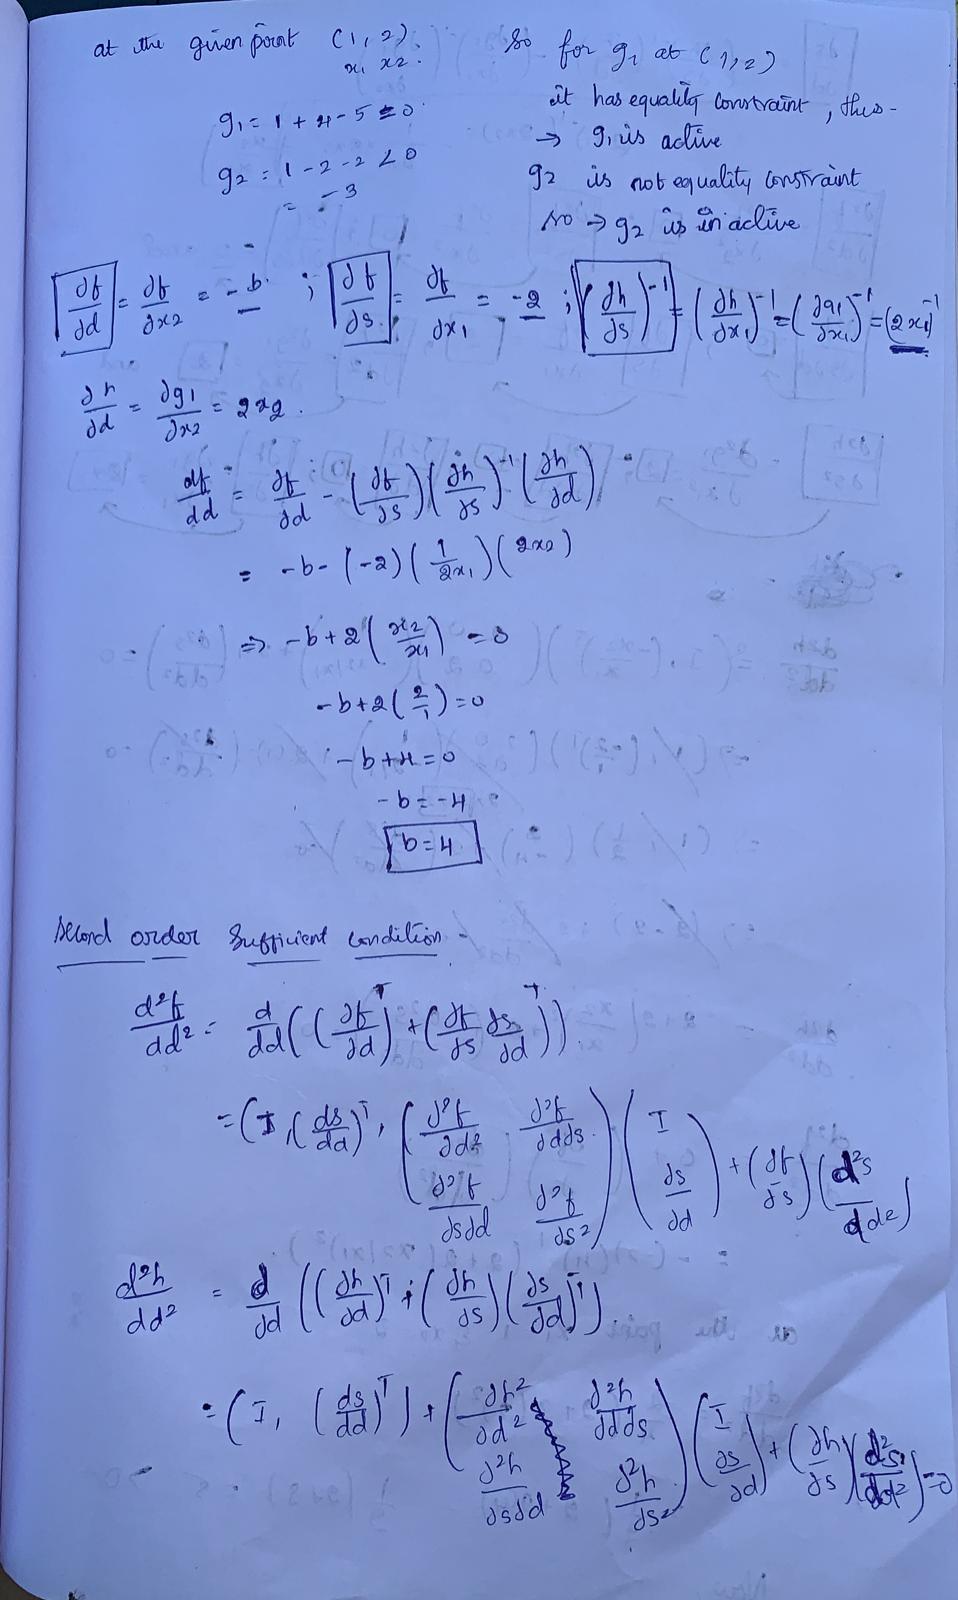 at the given point (1, 2).
x1 x2.
So for g1 at (1, 2)
it has equality constraint, thus -
g1 = 1 + 4 - 5 = 0
→ g1 is active
g2 = 1 - 2 - 2 < 0
= -3
g2 is not equality constraint
so → g2 is inactive
∂f/∂d = ∂f/∂x2 = -b ; ∂f/∂s = ∂f/∂x1 = -2 ; (∂h/∂s)^-1 = (∂h/∂x1)^-1 = (∂g1/∂x1)^-1 = (2x1)^-1
∂h/∂d = ∂g1/∂x2 = 2x2.
df/dd = ∂f/∂d - (∂f/∂s)(∂h/∂s)^-1(∂h/∂d)
= -b - (-2)(1/2x1)(2x2)
⇒ -b + 2(x2/x1) = 0
-b + 2(2/1) = 0
-b + 4 = 0
-b = -4
b = 4
Second order Sufficient condition -
d²f/dd² = d/dd((∂f/∂d)^T + (∂f/∂s ds/dd)^T)
= (I, (ds/dd)^T, (∂²f/∂d² ∂²f/∂d∂s ∂²f/∂s∂d ∂²f/∂s²)(I ∂s/∂d) + (∂f/∂s)(d²s/dd²)
d²h/dd² = d/dd((∂h/∂d)^T + (∂h/∂s)(∂s/∂d)^T).
= (I, (ds/dd)^T) + (∂h²/∂d² ∂²h/∂d∂s ∂²h/∂s∂d ∂²h/∂s²)(I ∂s/∂d) + (∂h/∂s)(d²s/dd²) = 0